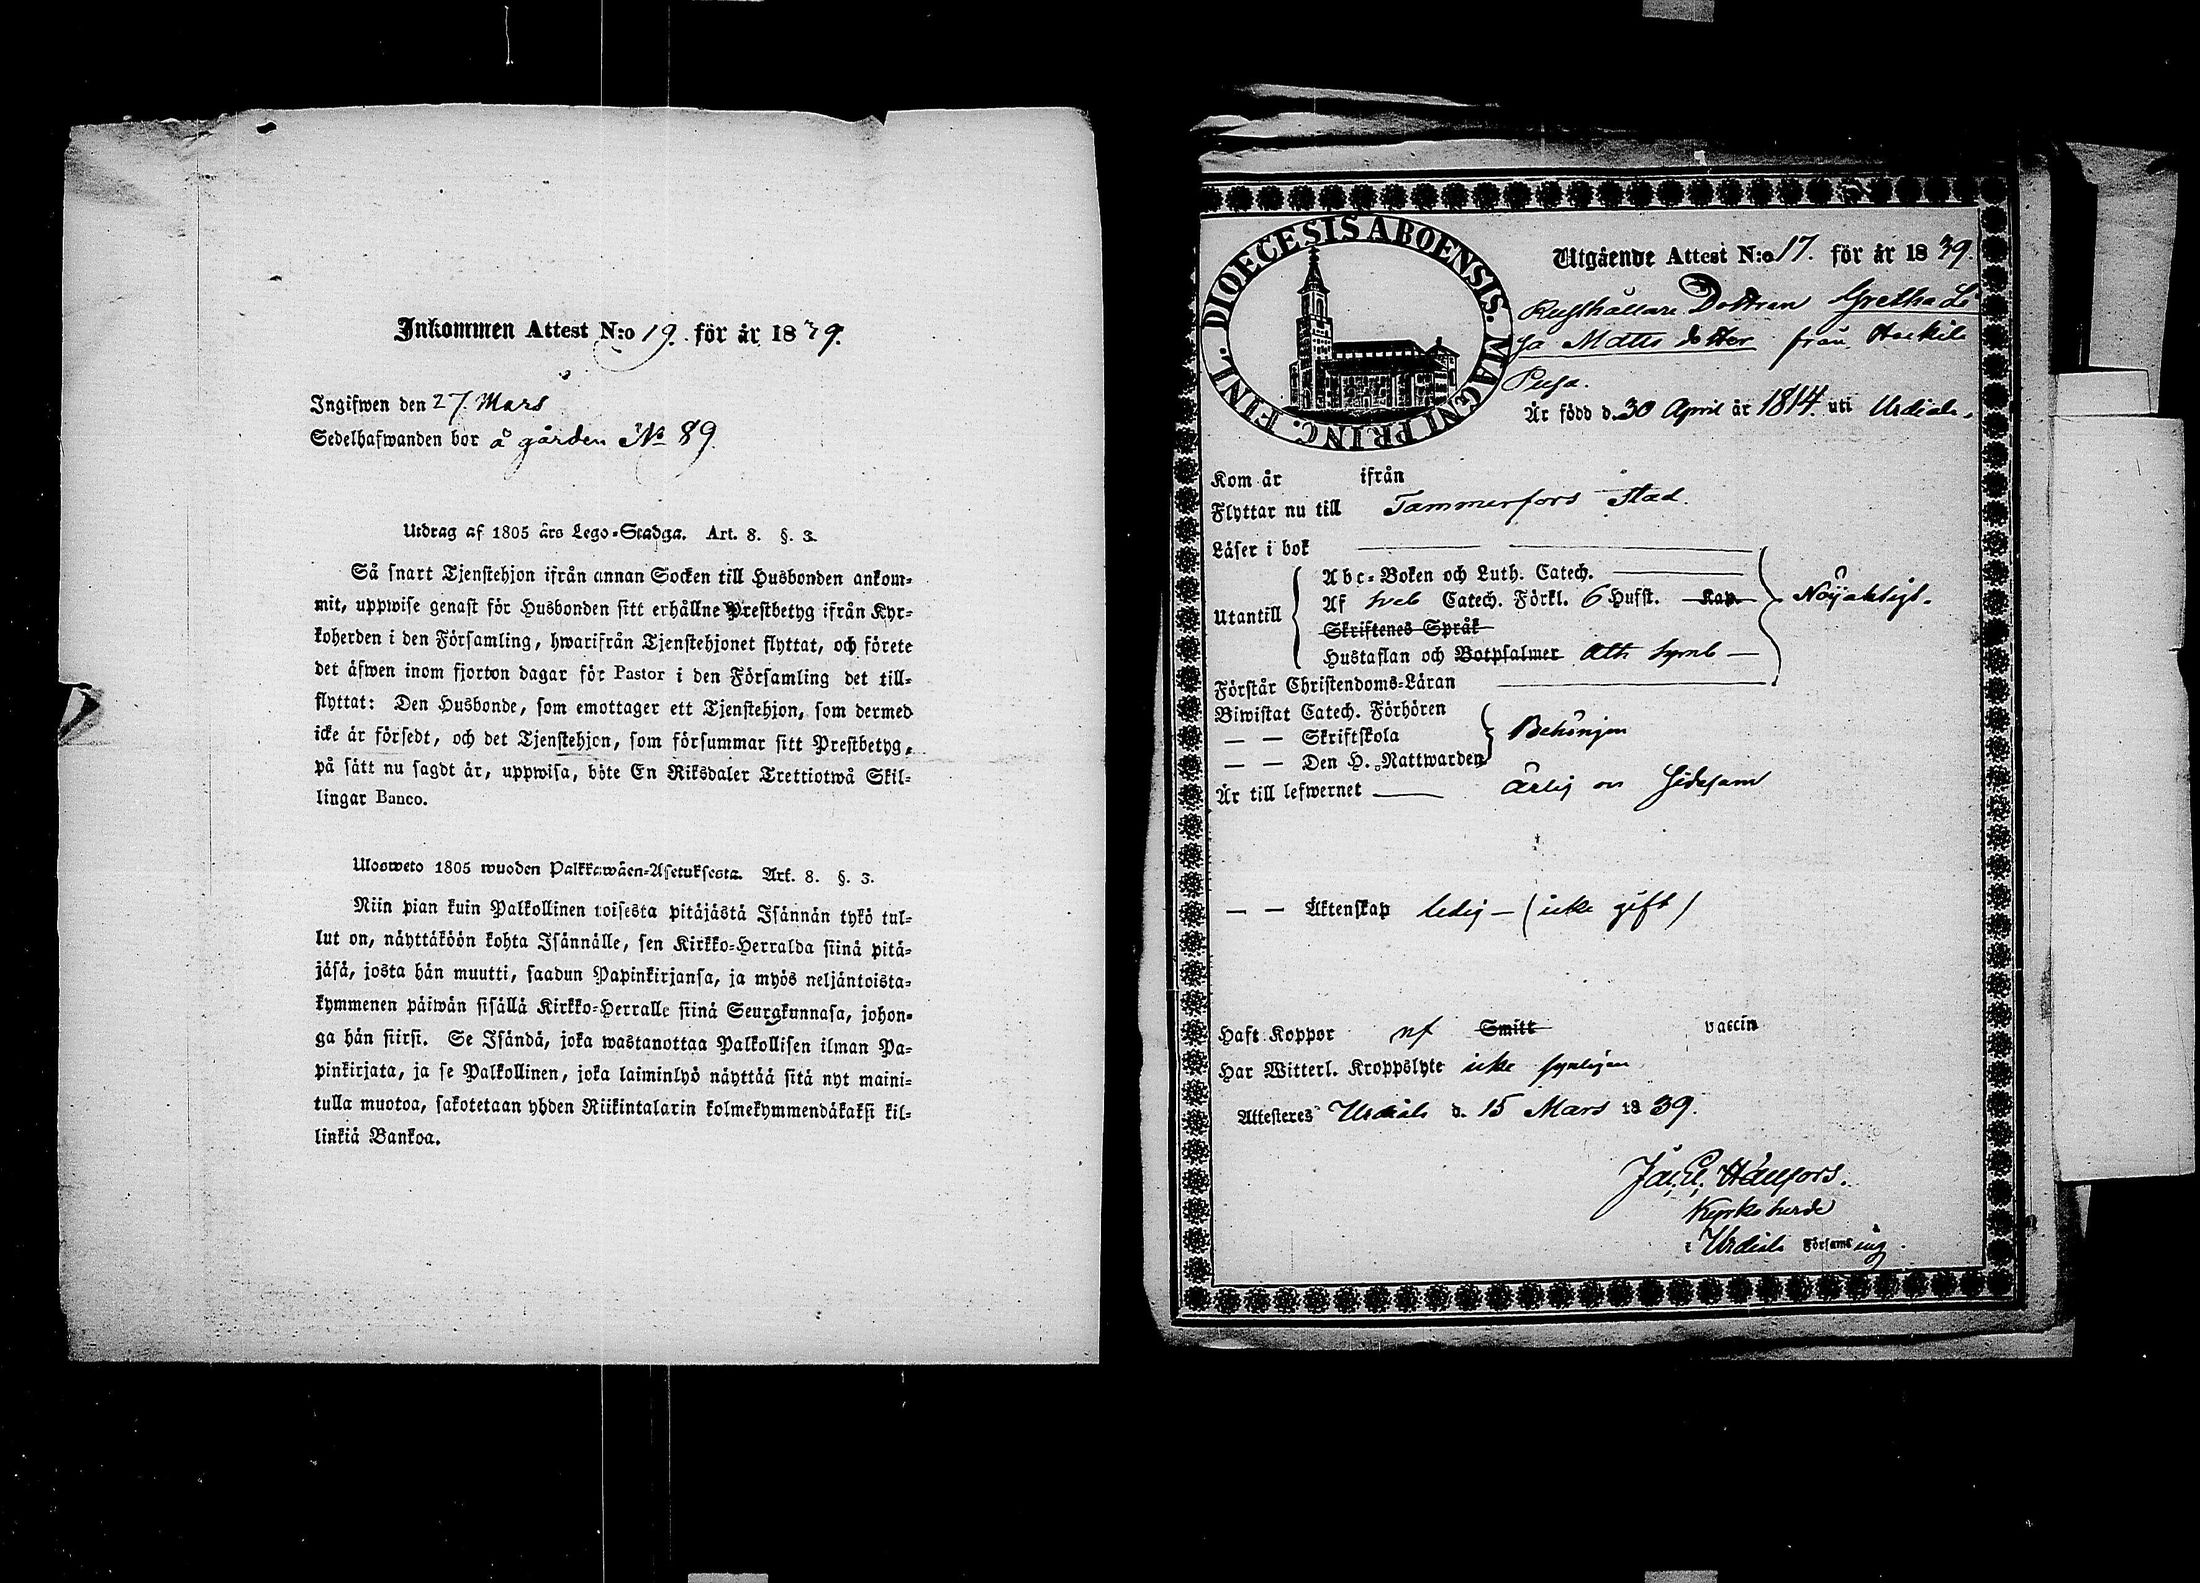 Inkommen Attest N:o 19. för år 1839.
Ingifwen den 27. Mars
Sedelhafwanden bor å gården No 89.
Utdrag af 1805 års Lego-Stadga. Art. 8. §. 3.
Så snart Tjenstehjon ifrån annan Socken till Husbonden ankom-
mit, uppwise genast för Husbonden sitt erhållne Prestbetyg ifrån Kyr-
koherden i den Församling, hwarifrån Tjenstehjonet flyttat, och förete
det äfwen inom fjorton dagar för Pastor i den Församling det till-
flyttat: Den Husbonde, som emottager ett Tjenstehjon, som dermed
icke är försedt, och det Tjenstehjon, som försummar sitt Prestbetyg,
på sätt nu sagdt är, uppwisa, böte En Riksdaler Trettiotwå Skil-
lingar Banco.
Ulosweto 1805 wuoden Palkkawäen-Asetuksesta. Art. 8. §. 3.
Niin pian kuin Palkollinen toisesta pitäjästä Isännän tykö tul-
lut on, näyttäköön kohta Isännälle, sen Kirkko-Herralda siinä pitä-
jäsä, josta hän muutti, saadun Papinkirjansa, ja myös neljäntoista-
kymmenen päiwän sisällä Kirkko-Herralle siinä Seurgkunnasa, johon-
ga hän siirsi. Se Isändä, joka wastanottaa Palkollisen ilman Pa-
pinkirjata, ja se Palkollinen, joka laiminlyö näyttää sitä nyt maini-
tulla muotoa, sakotetaan yhden Riikintalarin kolmekymmendäkaksi kil-
linkiä Bankoa.
DIOECESIS ABOENSIS. MAGNI PRINC. FINL.
Utgående Attest N:o 17. för år 1839.
Rusthållare Dottren Gretha Li
sa Matts dotter från Honkila
Pusa.
Är född d. 30 April år 1814. uti Urdiala.
Kom år ifrån
Flyttar nu till Tammerfors Stad.
Läser i bok
Abc-Boken och Luth. Catech.
Utantill Af Sveb Catech. Förkl. 6 Hufst. Kap. Nöyaktigt.
Skriftenes Språk
Hustaflan och Botpsalmer Ath Symb
Förstår Christendoms-Läran
Biwistat Catech. Förhören
— — Skriftskola Behörigen
— — Den H. Nattwarden
Är till lefwernet ärlig och sedesam
— — Äktenskap ledig — (icke gift)
Haft Koppor nf Smitt vaccin
Har Witterl. Kroppslyte icke synligen
Attesteres Urdiala d. 15 Mars 1839.
Kyrkoherde
i Urdiala Församling.